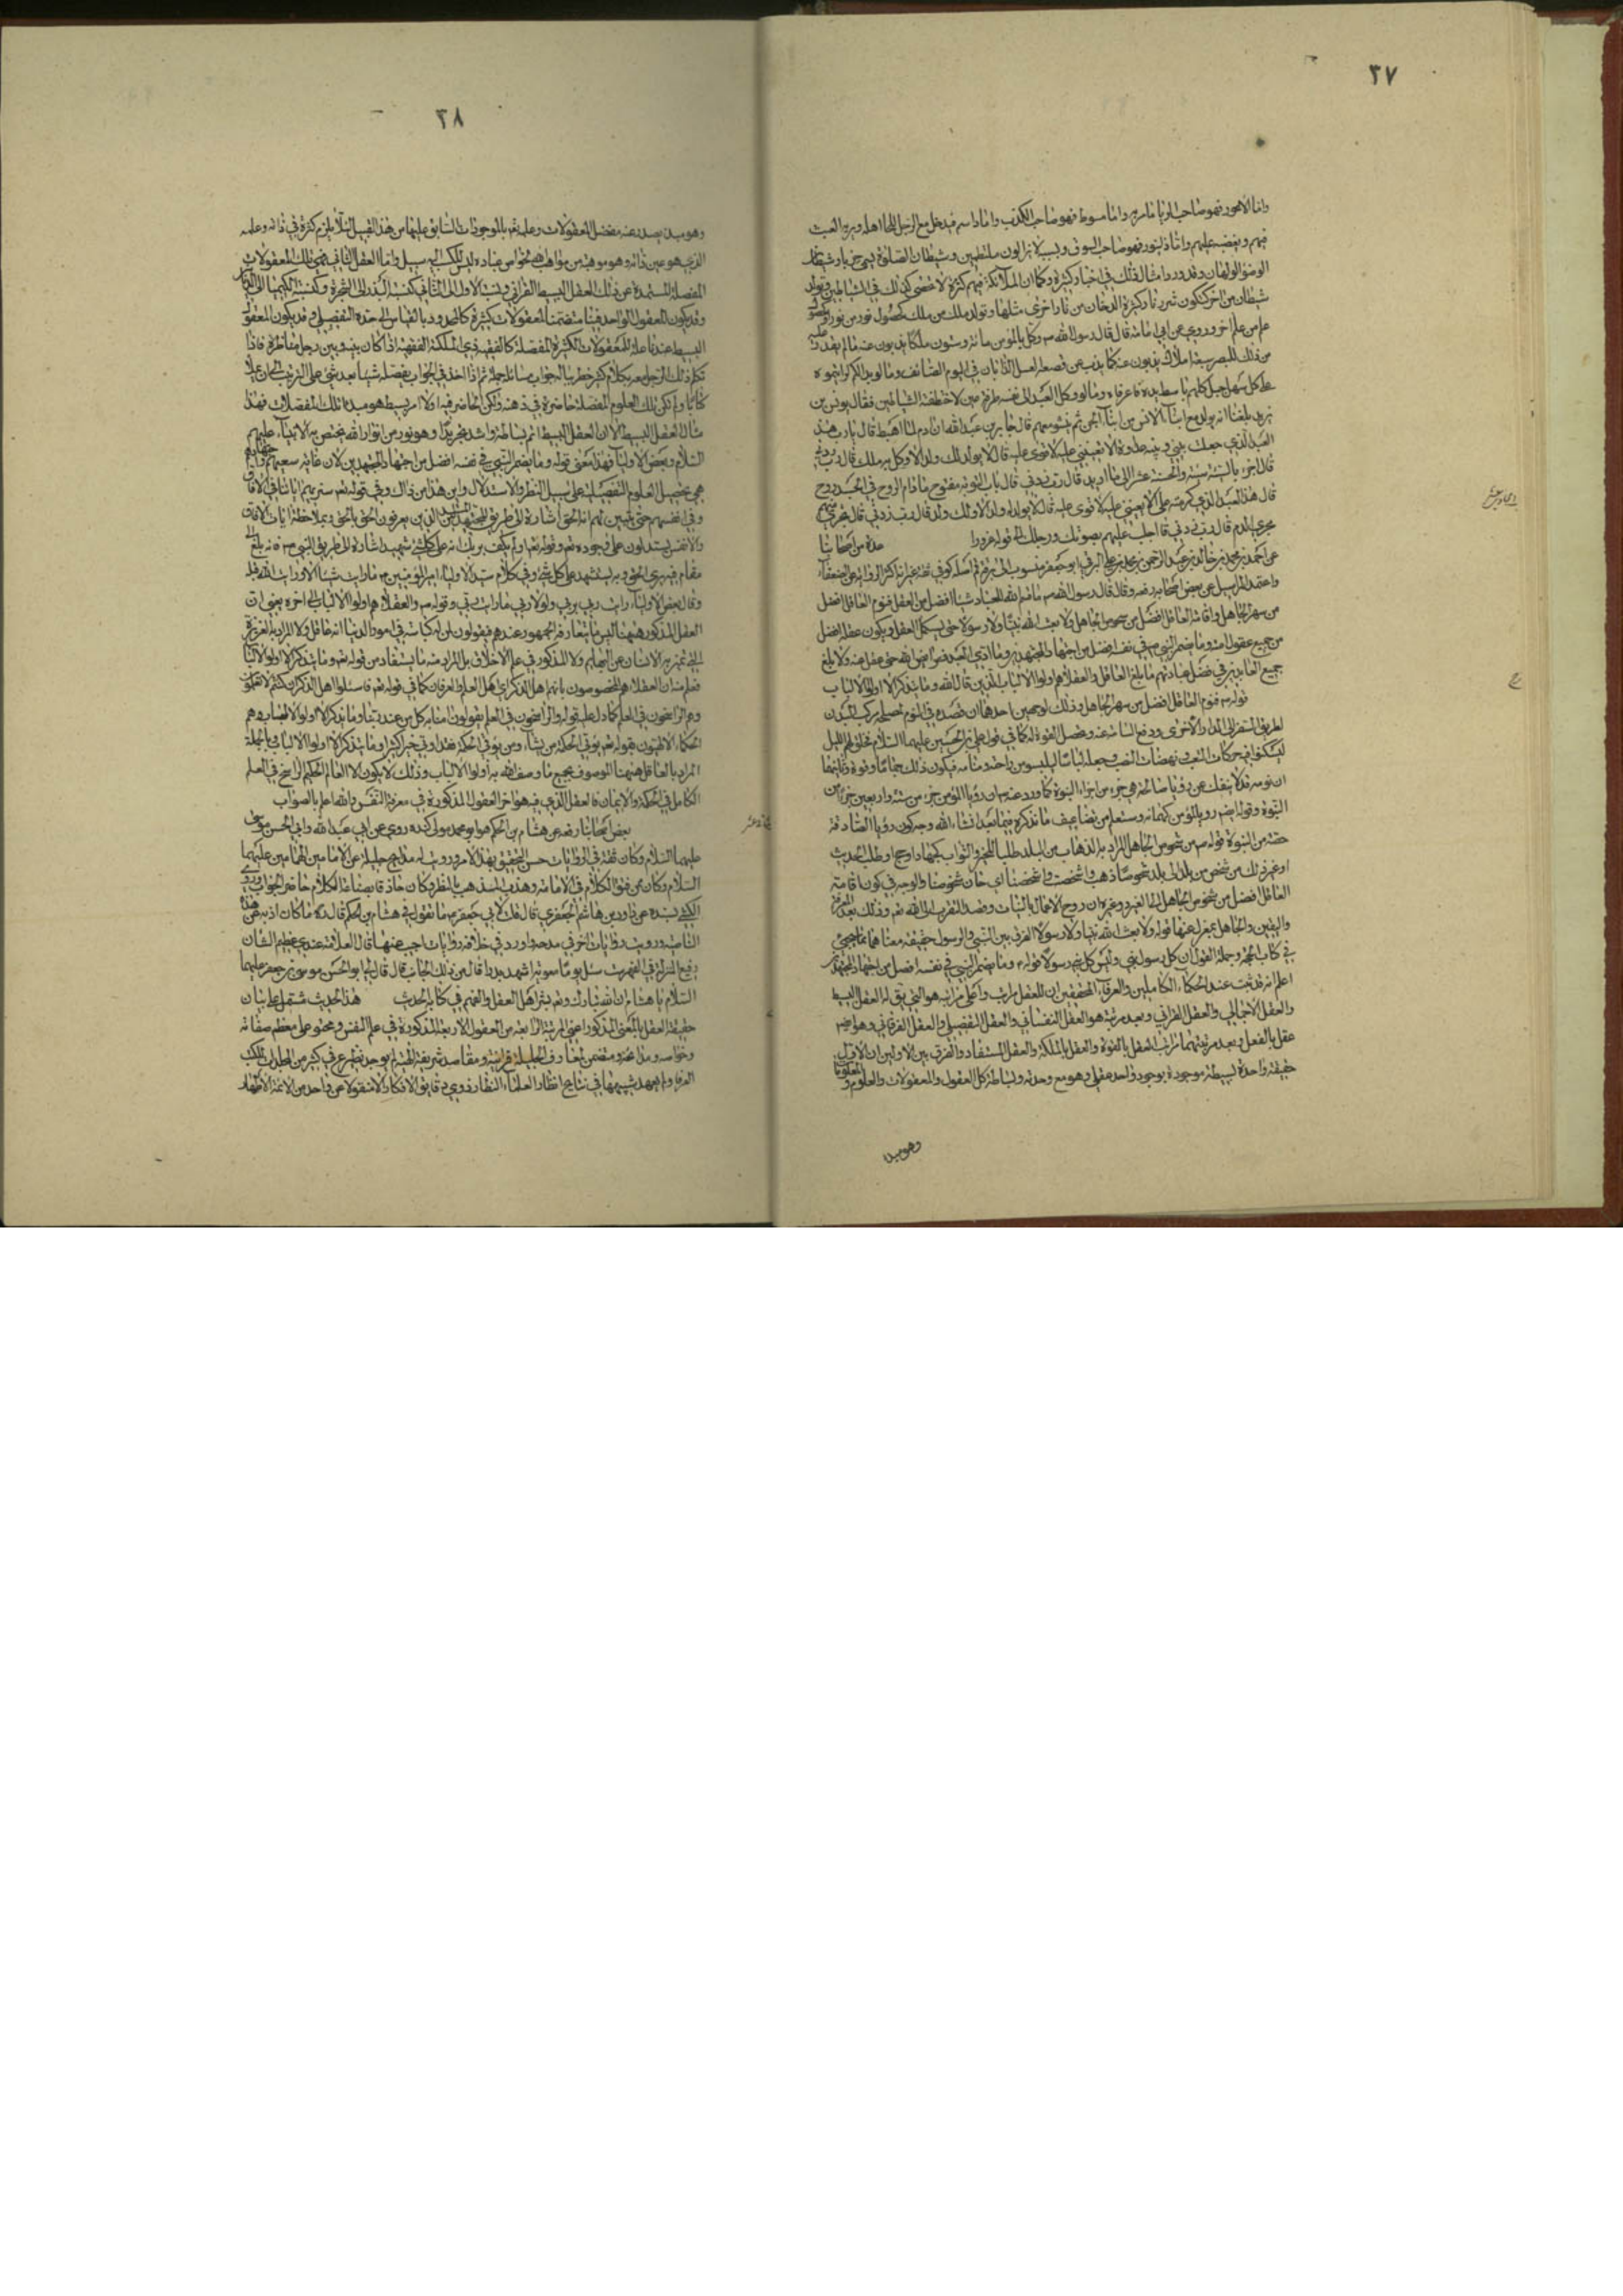 ٣٧
واما الاعور فهو صاحب الزنا يامر به واما مسوط فهو صاحب الكذب واما داسم فيدخل مع الرجل الى اهله ويريه العيب
فيهم ويغضبه عليهم واما زلنبور فهو صاحب السوق وبسببه لا يزالون ملتطمين وشيطان الصلوة يسمى خنزب وشيطان
الوضوء الولهان وقد ورد امثال ذلك في اخبار كثيرة وكما ان الملائكة فيهم كثرة لا تحصى كذلك في الشياطين وتولد
شيطان من اخر كتكون شرر نار وكثرة الدخان من نار اخرى مثلها وتولد ملك من ملك كحصول نور من نور
علم من علم اخر وروي عن ابي امامة قال قال رسول الله ص وكل بالمؤمن مائة وستون ملكا يذبون عنه ما لم يقدر عليه
من ذلك للبصر سبعة املاك يذبون عنه كما يذب عن قصعة العسل الذباب في اليوم الصائف وما لو بدا لكم لرأيتموه
على كل سهل وجبل كلهم باسط يده فاغر فاه وما لو وكل العبد الى نفسه طرفة عين لاختطفته الشياطين فقال يونس بن
يزيد بلغنا انه يولد مع ابناء الانس من ابناء الجن ثم ينشؤ معهم قال جابر بن عبد الله ان ادم لما اهبط قال يارب هذا
العبد الذي جعلت بيني وبينه عداوة الا تعينني عليه لا اقوى عليه قال لا يولد لك ولد الا وكل به ملك قال رب زدني
قال اجزي بالسيئة سيئة وبالحسنة عشرا الى ما اريد قال رب زدني قال باب التوبة مفتوح ما دام الروح في الجسد
قال هذا العبد الذي كرمته علي الا تعينني عليه لا اقوى عليه قال لا يولد له ولد الا ولك ولد قال رب زدني قال تجري منهم
مجرى الدم قال رب زدني قال اجلب عليهم بصوتك ورجلك الى قوله غرورا عدة من اصحابنا
عن احمد بن محمد بن خالد بن عبد الرحمن بن محمد بن علي البرقي ابو جعفر منسوب الى برقة قم اصله كوفي ثقة غير انه اكثر الرواية عن الضعفاء
واعتمد المراسيل عن بعض اصحابه رفعه قال قال رسول الله ص ما قسم الله للعباد شيئا افضل من العقل فنوم العاقل افضل
من سهر الجاهل واقامة العاقل افضل من شخوص الجاهل ولا بعث الله نبيا ولا رسولا حتى يستكمل العقل ويكون عقله افضل
من جميع عقول امته وما يضمر النبي ص في نفسه افضل من اجتهاد المجتهدين وما ادى العبد فرائض الله حتى عقل عنه ولا بلغ
جميع العابدين في فضل عبادتهم ما بلغ العاقل والعقلاء هم اولوا الالباب الذين قال الله وما يتذكر الا اولوا الالباب
قوله ص فنوم العاقل افضل من سهر الجاهل وذلك لوجهين احدهما ان قصده في النوم
لطريق السفر الى الدار الاخرى ودفع السامة عنه وتحصيل القوة له كما في قول علي بن الحسين عليهما السلام فخلق لهم الليل
ليسكنوا فيه من حركات التعب ونهضات النصب وجعله لباسا ليلبسوا من راحته ومنامه فيكون ذلك جماما وقوة وثانيهما
ان نومه قد لا ينفك عن رؤيا صالحة هي جزء من اجزاء النبوة كما ورد عنه ص ان رؤيا المؤمن جزء من ستة واربعين جزءا من
النبوة وقوله ايضا رؤيا المؤمن كهانة وستعلم من تضاعيف ما نذكره فيما بعد انشاء الله وجه كون رؤيا الصادقة
حصة من النبوة قوله ص من شخوص الجاهل المراد به الذهاب من البلد طلبا للخير والثواب كجهاد او حج او طلب الحديث
او غير ذلك من شخص من بلد الى بلد شخوصا ذهب
العاقل افضل من شخوص الجاهل
واليقين والجاهل بمعزل عنها قوله ولا بعث الله نبيا ولا رسولا الفرق بين النبي والرسول حقيقة معناهما مما سيجئ
في كتاب الحجة وجملة القول ان كل رسول نبي وليس كل نبي رسولا قوله ص وما يضمر النبي في نفسه افضل من اجتهاد المجتهدين
اعلم انه قد ثبت عند الحكماء الكاملين والعرفاء المحققين ان للعقل مراتب واعلى مراتبه هو الذي يق له العقل البسيط
والعقل الاجمالي والعقل القراني وبعد مرتبته هو العقل النفساني والعقل التفصيلي والعقل الفرقاني وهو ايضا
عقل بالفعل وبعد مرتبتهما مراتب العقل بالقوة والعقل بالملكة والعقل المستفاد والفرق بين الاولين ان الاول
حقيقة واحدة بسيطة موجودة بوجود واحد عقلي وهو مع وحدته وبساطته كل العقول والمعقولات والعلوم والمعلومات
وهو مبدء
٣٨
وهو مبدء يصدر عنه مفصل المعقولات وعلمه تعالى بالموجودات السابق عليها من هذا القبيل لئلا يلزم كثرة في ذاته وعلمه
الذي هو عين ذاته وهو موهبة من مواهب الله لخواص عباده ليس لكسب اليه سبيل واما العقل الثاني فهي تلك المعقولات
المفصلة المستمدة عن ذلك العقل البسيط القراني ونسبة الاول الى الثاني كنسبة البذر الى الشجرة وكنسبة الكيميا الى الدنانير
وقد يكون المعقول الواحد فينا متضمنا لمعقولات كثيرة كالحدود بالقياس الى حده التفصيلي وقد يكون المعقول
البسيط عندنا علة للمعقولات الكثيرة المفصلة كالفقيه ذي الملكة الفقهية اذا كان بينه وبين رجل مناظرة فاذا
تكلم ذلك الرجل معه بكلام كثير خطر بباله جواب مسائله جملة ثم اذا اخذ في الجواب يفصله شيئا بعد شئ على الترتيب الى ان يملا
كتابا ولم تكن تلك العلوم المفصلة حاضرة في ذهنه ولكن الحاضر فيه اولا امر بسيط هو مبدء تلك المفصلات فهذا
مثال العقل البسيط الا ان العقل البسيط اتم بساطة واشد تجريدا وهو نور من انوار الله يختص به الانبياء عليهم
السلام وبعض الاولياء فهذا معنى قوله وما يضمر النبي في نفسه افضل من اجتهاد المجتهدين لان غاية سعيهم
هي تحصيل العلوم التفصيلية على سبيل النظر والاستدلال واين هذا من ذاك وفي قوله تع سنريهم اياتنا في الافاق
وفي انفسهم حتى يتبين لهم انه الحق اشارة الى طريق المجتهدين الذين يعرفون الحق بالحق وبملاحظة ايات الافاق
والانفس يستدلون على وجوده تع وقوله تع اولم يكف بربك انه على كل شئ شهيد اشارة الى طريق النبي ص فانه بلغ الى
مقام فيه يرى الحق وبه يستشهد على كل شئ وفي كلام سيد الاولياء امير المؤمنين ع ما رايت شيئا الا ورايت الله قبله
وقال بعض الاولياء رايت ربي بربي ولولا ربي ما رايت ربي وقوله ص والعقلاء هم اولوا الالباب الى اخره يعني ان
العقل المذكور ههنا ليس ما يتعارفه الجمهور عندهم فيقولون لمن له كياسة في امور الدنيا انه عاقل ولا المراد به الغريزة
التي تميز بها الانسان عن البهايم ولا المذكور في علم الاخلاق بل المراد منه ما يستفاد من قوله تع وما يتذكر الا اولوا الالباب
فعلم منه ان العقلاء هم المخصوصون بانهم اهل الذكر اي اهل العلم والعرفان كما في قوله تع فاسئلوا اهل الذكر ان كنتم لا تعلمون
وهم الراسخون في العلم كما دل عليه قوله والراسخون في العلم يقولون امنا به كل من عند ربنا وما يذكر الا اولوا الالباب وهم
الحكماء الالهيون بقوله تع يؤتي الحكمة من يشاء ومن يؤتى الحكمة فقد اوتي خيرا كثيرا وما يذكر الا اولوا الالباب وبالجملة
المراد بالعاقل ههنا الموصوف بجميع ما وصف الله به اولوا الالباب وذلك لا يكون الا العالم الحكيم الراسخ في العلم
الكامل في الحكمة والايمان فالعقل الذي فيه هو اخر العقول المذكورة في معرفة النفس والله اعلم بالصواب
بعض اصحابنا رفعه عن هشام بن الحكم هو ابو محمد مولى كنده روى عن ابي عبد الله وابي الحسن موسى
عليهما السلام وكان ثقة في الروايات حسن التحقيق بهذا الامر ورويت له مدايح جليلة عن الامامين الهمامين عليهما
السلام وكان ممن فتق الكلام في الامامة وهذب المذهب بالنظر وكان حاذقا بصناعة الكلام حاضر الجواب وروى
الكشي بسنده عن داود بن هاشم الجعفري قال قلت لابي جعفر ع ما تقول في هشام بن الحكم قال رحمه الله ما كان اذبه عن هذه
الناحية ورويت روايات اخر في مدحه واورد في خلافه روايات اجيب عنها قال العلامة عندي عظيم الشان
رفيع المنزلة
السلام يا هشام ان الله تبارك وتعالى بشر اهل العقل والفهم في كتابه الحديث هذا الحديث مشتمل على بيان
حقيقة العقل بالمعنى المذكور اعني المرتبة الرابعة من العقول الاربعة المذكورة في علم النفس ومحتو على معظم صفاته
وخواصه ومتضمن لمعارف الجليلة قرانية ومقاصد شريفة الهية لم يوجد نظيرها في كثير من مجلدات كتب
العرفاء ولم يعهد شبيهها في نتايج انظار العلماء النظار ذوي دقايق الافكار الا منقولة عن واحد من الائمة الاطهار